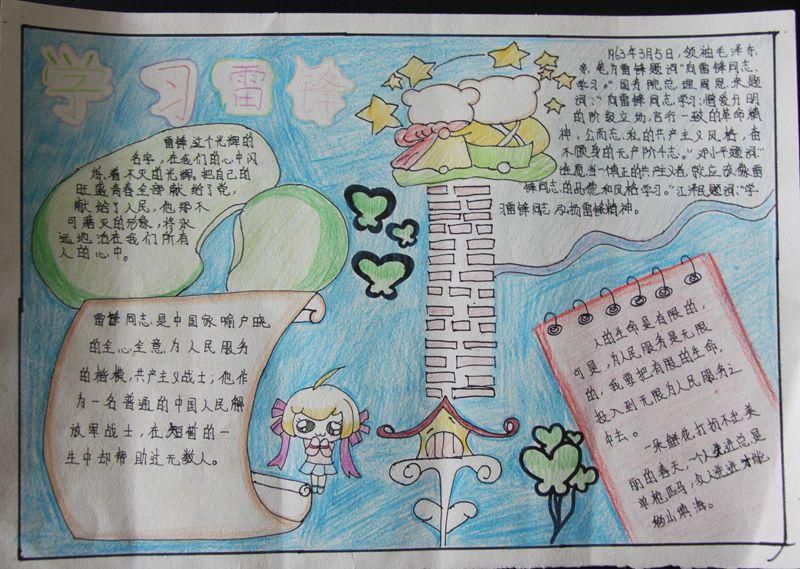 学习雷锋
雷锋这个光辉的
名字，在我们的心中闪
烁着不灭的光辉。把自己的
旺盛青春全部献给了党，
献给了人民，他那不
可磨灭的形象，将永
远地活在我们所有
人的心中。
1963年3月5日，领袖毛泽东
亲笔为雷锋题词“向雷锋同志
学习。”国务院总理周恩来题
词：“向雷锋同志学习：憎爱分明
的阶级立场，言行一致的革命精
神，公而忘私的共产主义风格，奋
不顾身的无产阶斗志。”邓小平题词：“
谁愿当一个真正的共产主义者，就应该像雷
锋同志的品德和风格学习。”江泽民题词：“学
习雷锋同志，弘扬雷锋精神。
雷锋同志是中国家喻户晓
的全心全意为人民服务
的楷模，共产主义战士；他作
为一名普通的中国人民解
放军战士，在短暂的一
生中却帮助过无数人。
人的生命是有限的，
可是，为人民服务是无限
的，我要把有限的生命，
投入到无限为人民服务之
中去。
一朵鲜花打扮不出美
丽的春天，一个人先进总是
单枪匹马，众人先进才能
移山填海。